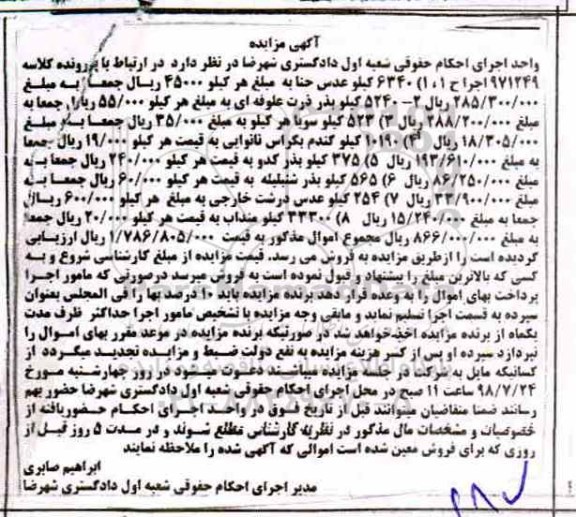 آگهی مزایده
واحد اجرای احکام حقوقی شعبه اول دادگستری شهرضا در نظر دارد در ارتباط با پرونده کلاسه
۹۷۱۲۴۹ اجرا ح ۱، ۱) ۶۳۴۰ کیلو عدس حنا به مبلغ هر کیلو ۴۵۰۰۰ ریال جمعا به مبلغ
۲۸۵/۳۰۰/۰۰۰ ریال ۲- ۵۲۴۰ کیلو بذر ذرت علوفه ای به مبلغ هر کیلو ۵۵/۰۰۰ ریال جمعا به
مبلغ ۲۸۸/۲۰۰/۰۰۰ ریال ۳) ۵۲۳ کیلو سویا هر کیلو به مبلغ ۳۵/۰۰۰ ریال جمعا به مبلغ
۱۸/۳۰۵/۰۰۰ ریال ۴) ۱۰۱۹۰ کیلو گندم بکراس نانوایی به قیمت هر کیلو ۱۹/۰۰۰ ریال جمعا
به مبلغ ۱۹۳/۶۱۰/۰۰۰ ریال ۵) ۳۷۵ کیلو بذر کدو به قیمت هر کیلو ۲۴۰/۰۰۰ ریال جمعا به
مبلغ ۸۶/۲۵۰/۰۰۰ ریال ۶) ۵۶۵ کیلو بذر شنبلیله به قیمت هر کیلو ۶۰/۰۰۰ ریال جمعا به
مبلغ ۳۳/۹۰۰/۰۰۰ ریال ۷) ۲۵۴ کیلو عدس درشت خارجی به مبلغ هر کیلو ۶۰۰/۰۰۰ ریال
جمعا به مبلغ ۱۵/۲۴۰/۰۰۰ ریال ۸) ۳۳۳۰۰ کیلو منداب به قیمت هر کیلو ۲۰/۰۰۰ ریال جمعا
به مبلغ ۸۶۶/۰۰۰/۰۰۰ ریال مجموع اموال مذکور به قیمت ۱/۷۸۶/۸۰۵/۰۰۰ ریال ارزیابی
گردیده است را ازطریق مزایده به فروش می رسد. قیمت مزایده از مبلغ کارشناسی شروع و به
کسی که بالاترین مبلغ را پیشنهاد و قبول نموده است به فروش میرسد درصورتی که مامور اجرا
پرداخت بهای اموال را به وعده قرار دهد برنده مزایده باید ۱۰ درصد بها را فی المجلس بعنوان
سپرده به قسمت اجرا تسلیم نماید و مابقی وجه مزایده با تشخیص مامور اجرا حداکثر ظرف مدت
یکماه از برنده مزایده اخذ خواهد شد در صورتیکه برنده مزایده در موعد مقرر بهای اموال را
نپردازد سپرده او پس از کسر هزینه مزایده به نفع دولت ضبط و مزایده تجدید میگردد از
کسانیکه مایل به شرکت در جلسه مزایده میباشند دعوت می شود در روز چهارشنبه مورخ
۹۸/۷/۲۴ ساعت ۱۱ صبح در محل اجرای احکام حقوقی شعبه اول دادگستری شهرضا حضور بهم
رسانند ضمنا متقاضیان میتوانند قبل از تاریخ فوق در واحد اجرای احکام حضوریافته از
خصوصیات و مشخصات مال مذکور در نظریه کارشناسی مطلع شوند و در مدت ۵ روز قبل از
روزی که برای فروش معین شده است اموالی که آگهی شده را ملاحظه نمایند
ابراهیم صابری
مدیر اجرای احکام حقوقی شعبه اول دادگستری شهرضا